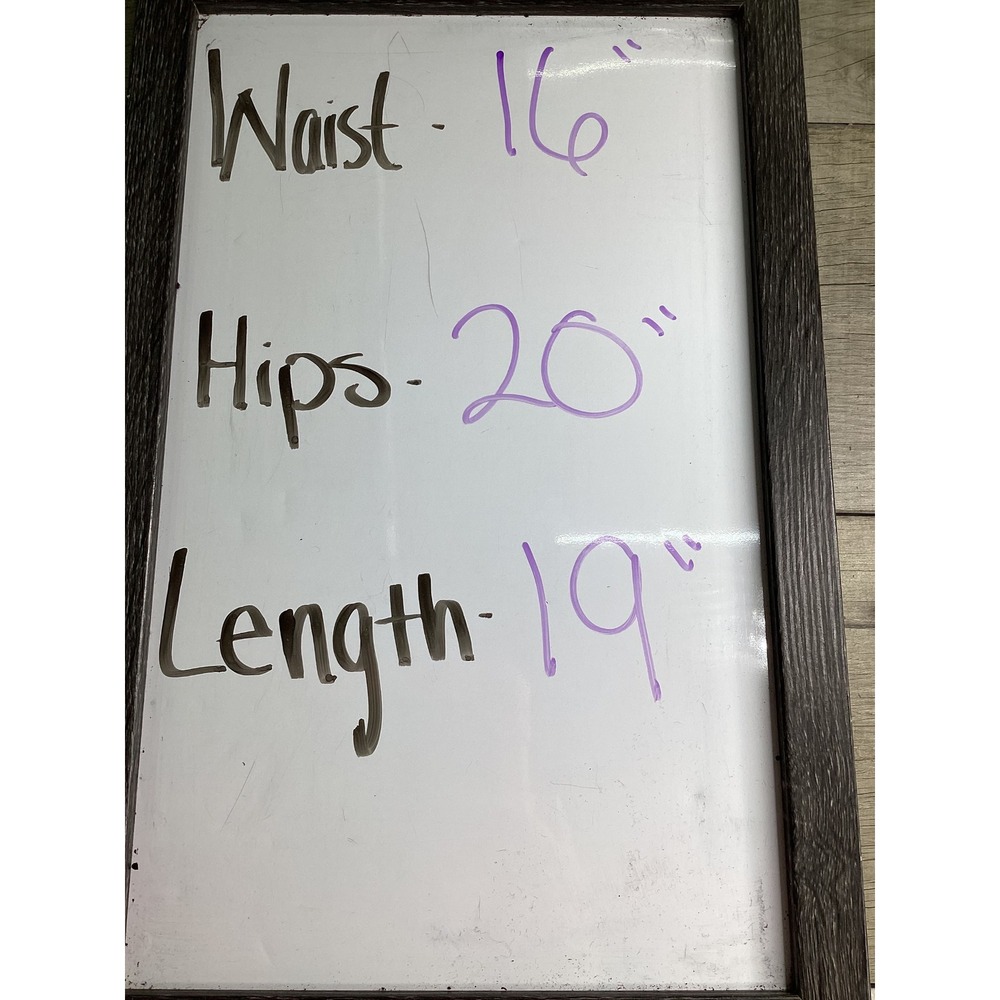 Waist - 16"
Hips - 20"
Length - 19"